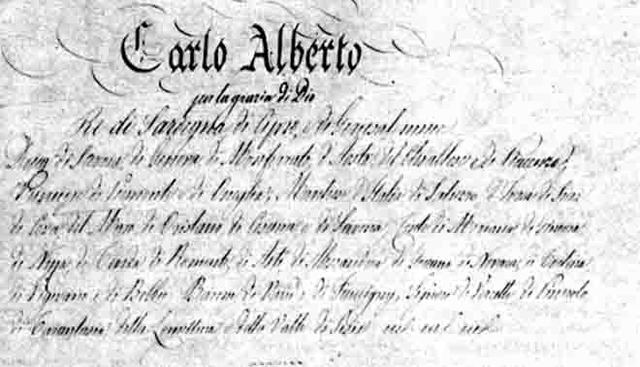 Carlo Alberto
per la grazia di Dio
Re di Sardegna di Cipro e di Gerusalemme
Duca di Savoia di Genova di Monferrato d'Aosta del Chiablese e di Piacenza
Principe di Piemonte e di Oneglia, Marchese d'Italia di Saluzzo d'Ivrea di Susa
di Ceva del Maro di Oristano di Cesana e di Savona Conte di Moriana di Ginevra
di Nizza di Tenda di Romonte, di Asti di Alessandria di Novara, di Tortona
di Vigevano e di Bobbio Barone di Vaud e di Faucigny, Signore di Vercelli di Pinerolo
di Tarantasia della Lomellina e della Valle di Sesia